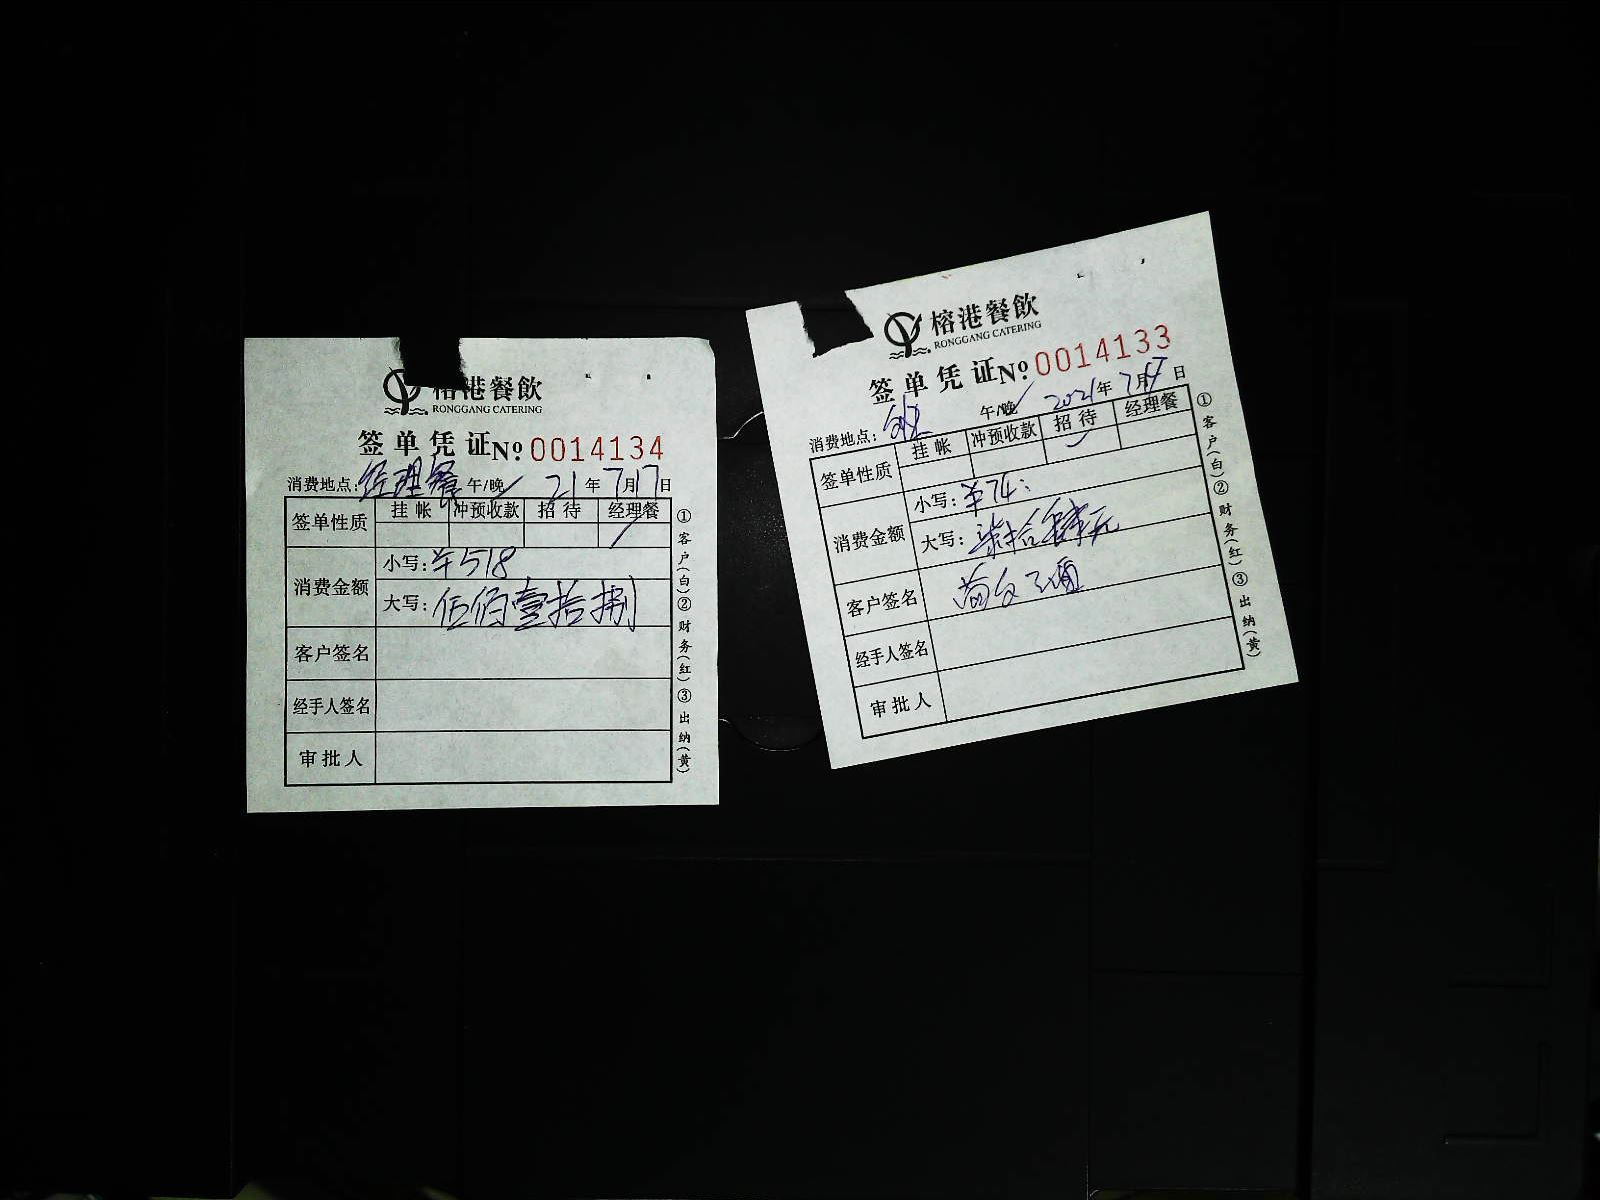 榕港餐飲
RONGGANG CATERING
签单凭证 Nº 0014134
消费地点: 经理餐 午/晚 21年7月17日
签单性质 挂帐 冲预收款 招待 经理餐
消费金额
小写: ¥518
大写: 伍佰壹拾捌
客户签名
经手人签名
审批人
①客户(白)②财务(红)③出纳(黄)
榕港餐飲
RONGGANG CATERING
签单凭证 Nº 0014133
消费地点: 午/晚 2021年7月17日
签单性质 挂帐 冲预收款 招待 经理餐
消费金额
小写: ¥74
大写: 柒拾肆元
客户签名
经手人签名
审批人
①客户(白)②财务(红)③出纳(黄)